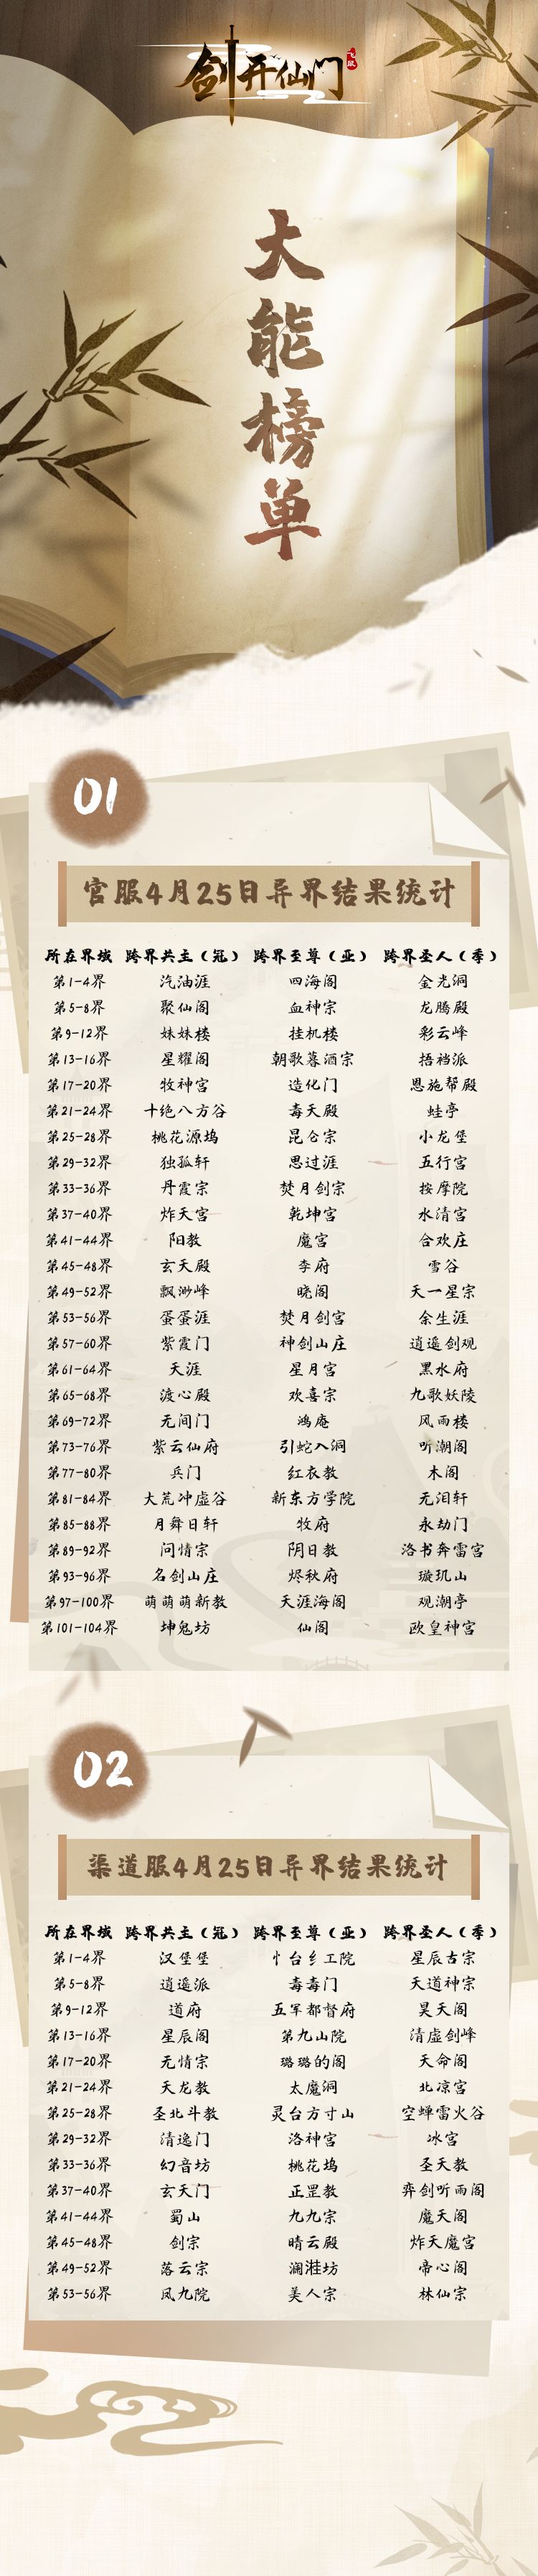 剑开仙门
大能榜单
01
官服4月25日异界结果统计
所在界域 跨界共主（冠） 跨界至尊（亚） 跨界圣人（季）
第1-4界 汽油涯 四海阁 金光洞
第5-8界 聚仙阁 血神宗 龙腾殿
第9-12界 妹妹楼 挂机楼 彩云峰
第13-16界 星耀阁 朝歌暮酒宗 捂裆派
第17-20界 牧神宫 造化门 恩施帮殿
第21-24界 十绝八方谷 毒天殿 蛙亭
第25-28界 桃花源坞 昆仑宗 小龙堡
第29-32界 独孤轩 思过涯 五行宫
第33-36界 丹霞宗 焚月剑宗 按摩院
第37-40界 炸天宫 乾坤宫 水清宫
第41-44界 阳教 魔宫 合欢庄
第45-48界 玄天殿 李府 雪谷
第49-52界 飘渺峰 晓阁 天一星宗
第53-56界 蛋蛋涯 焚月剑宫 余生涯
第57-60界 紫霞门 神剑山庄 逍遥剑观
第61-64界 天涯 星月宫 黑水府
第65-68界 渡心殿 欢喜宗 九歌妖陵
第69-72界 无间门 鸿庵 风雨楼
第73-76界 紫云仙府 引蛇入洞 听潮阁
第77-80界 兵门 红衣教 木阁
第81-84界 大荒冲虚谷 新东方学院 无泪轩
第85-88界 月舞日轩 牧府 永劫门
第89-92界 问情宗 阴日教 洛书奔雷宫
第93-96界 名剑山庄 烬秋府 璇玑山
第97-100界 萌萌萌新教 天涯海阁 观潮亭
第101-104界 坤兔坊 仙阁 欧皇神宫
02
渠道服4月25日异界结果统计
所在界域 跨界共主（冠） 跨界至尊（亚） 跨界圣人（季）
第1-4界 汉堡堡 忄台纟工院 星辰古宗
第5-8界 逍遥派 毒毒门 天道神宗
第9-12界 道府 五军都督府 昊天阁
第13-16界 星辰阁 第九山院 清虚剑峰
第17-20界 无情宗 璐璐的阁 天命阁
第21-24界 天龙教 太魔洞 北凉宫
第25-28界 圣北斗教 灵台方寸山 空蝉雷火谷
第29-32界 清逸门 洛神宫 冰宫
第33-36界 幻音坊 桃花坞 圣天教
第37-40界 玄天门 正罡教 弈剑听雨阁
第41-44界 蜀山 九九宗 魔天阁
第45-48界 剑宗 晴云殿 炸天魔宫
第49-52界 落云宗 澜溎坊 帝心阁
第53-56界 凤九院 美人宗 林仙宗